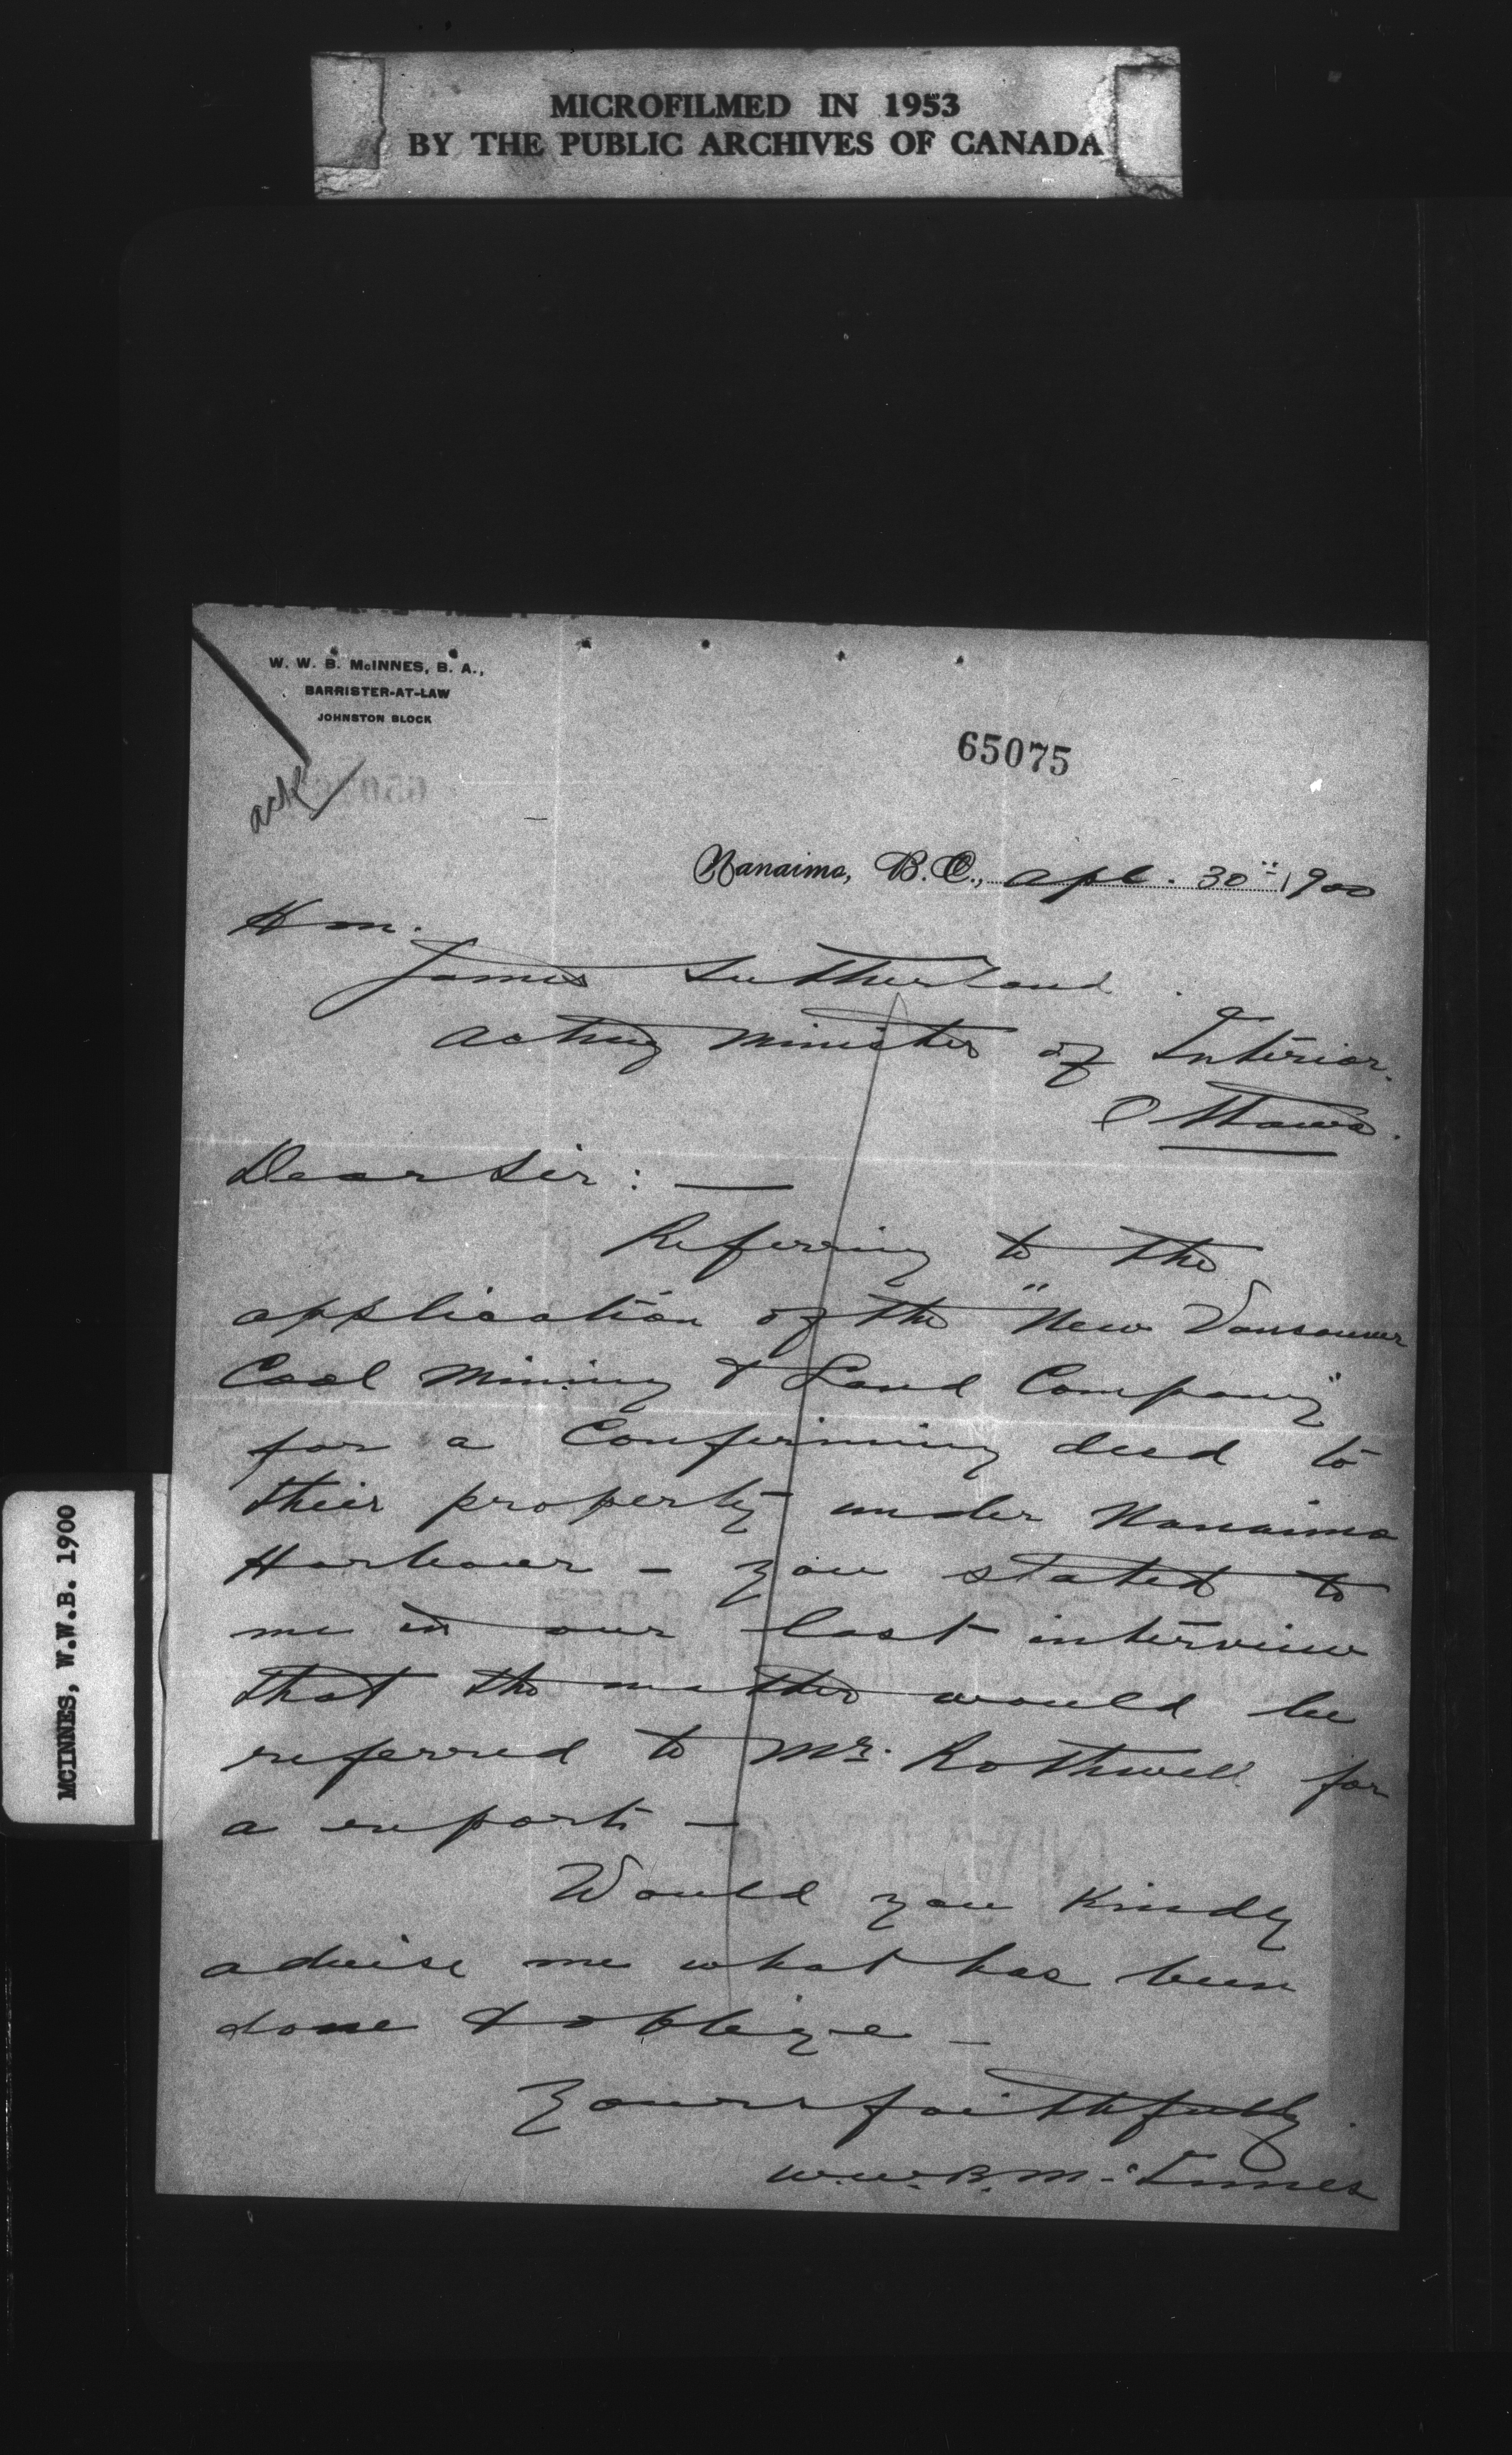 MICROFILMED IN 1953
BY THE PUBLIC ARCHIVES OF CANADA
W. W. B. McINNES, B. A.,
BARRISTER-AT-LAW
JOHNSTON BLOCK
65075
ackd
Nanaimo, B.C., Apl. 30th 1900
Hon.
James Sutherland
Acting Minister of Interior.
Ottawa.
Dear Sir: —
Referring to the
application of the "New Vancouver
Coal Mining & Land Company"
for a Confirming deed to
their property under Nanaimo
Harbour – you stated to
me in our last interview
that the matter would be
referred to Mr. Rothwell for
a report –
Would you kindly
advise me what has been
done & oblige –
Yours faithfully
W.W.B. McInnes
MCINNES, W.W.B. 1900